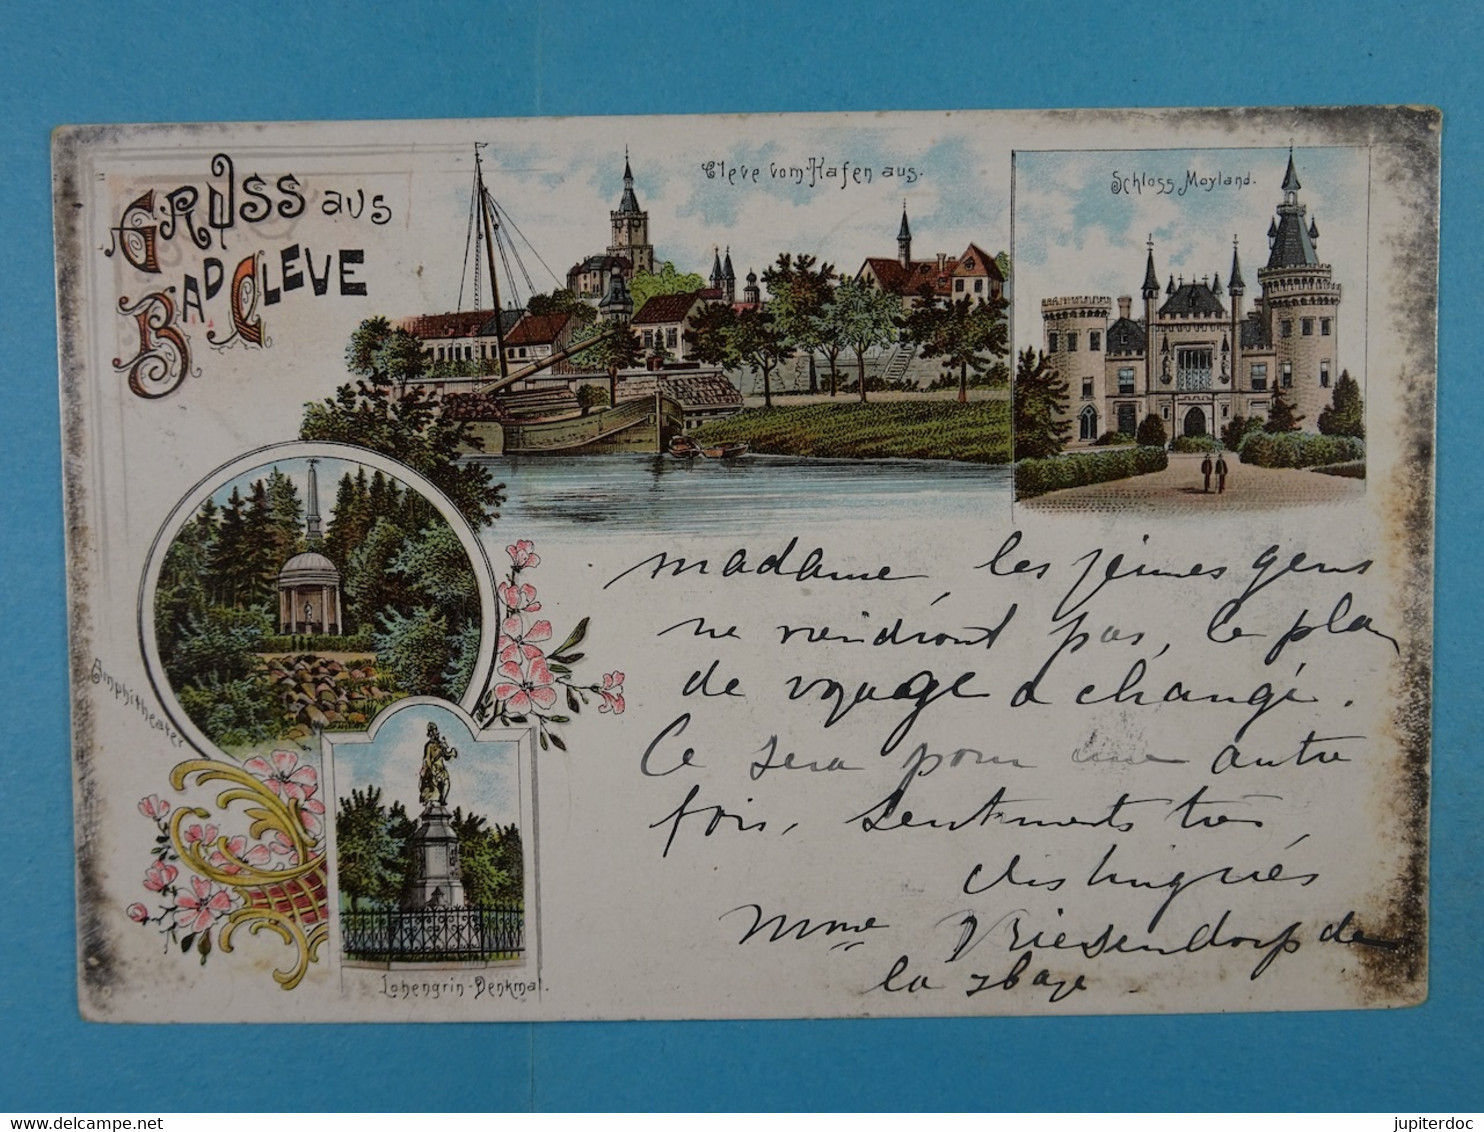 Gruss aus
Bad Cleve
Cleve vom Hafen aus.
Schloss Moyland.
Amphitheater
Lohengrin-Denkmal.
madame, les jeunes gens
ne viendront pas, le plan
de voyage a changé.
Ce sera pour une autre
fois, sentiments très
distingués
Mme Vriesendorp de
la
delcampe.net
jupiterdoc